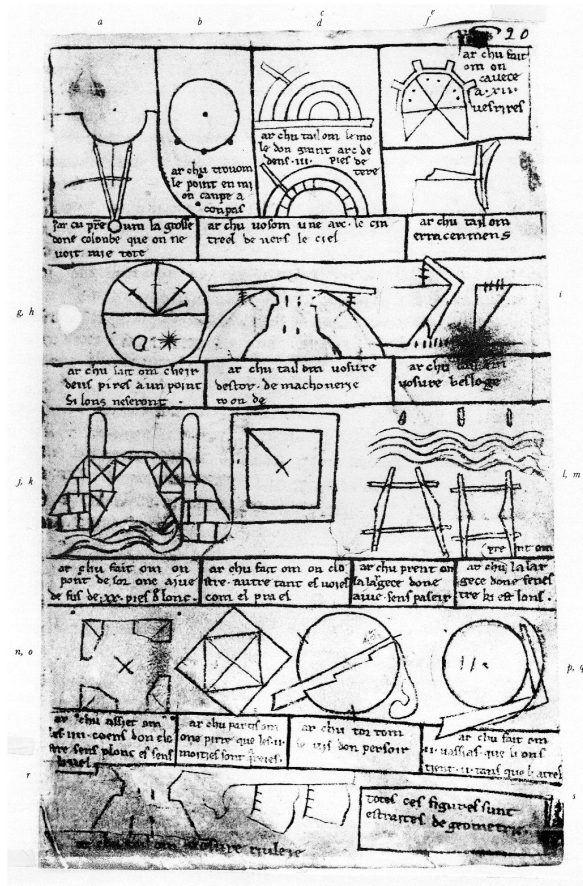 a
b
c
d
e
f
20
ar chu fait
om on
cauece
a . xii .
uesrires
ar chu tail om le mo
le don grant arc de
dens . iii . pies de
tere
ar chu trouom
le point en mi
on canpe a
conpas
Par cu prent om la grosse
done colonbe que on ne
uoit mie tote
ar chu uosom une arc . le cin
treel de uers le ciel
ar chu tail om
erracenmens
g, h
i
ar chu fait om cheir
deus pires a un point
si lons ne seront .
ar chu tail om uosure
destor . de machonerie
roonde
ar chu tail om
uosure besloge
j, k
l, m
ar chu fait om on
pont de sor one aiue
de fus de . xx . pies de lonc .
ar chu fait om on clo
stre . autre tant es uoies
com el prael
ar chu prent om
la largece done
aiue . sens paseir
prent om
ar chu la lar
gece done fenes
tre ki est lons .
n, o
p, q
ar chu assiet om
les iiii . coens don clo
stre sens plonc et sens
liuel .
ar chu partis om
one pirre que les . ii .
moities sont
ar chu tor tom
le uis don persoir
ar chu fait om
. ii . uassias que li ons
tient . ii . tans que li atres
r
s
totes ces figures sunt
estraites de geometrie .
ar chu tail om uosure riuleie